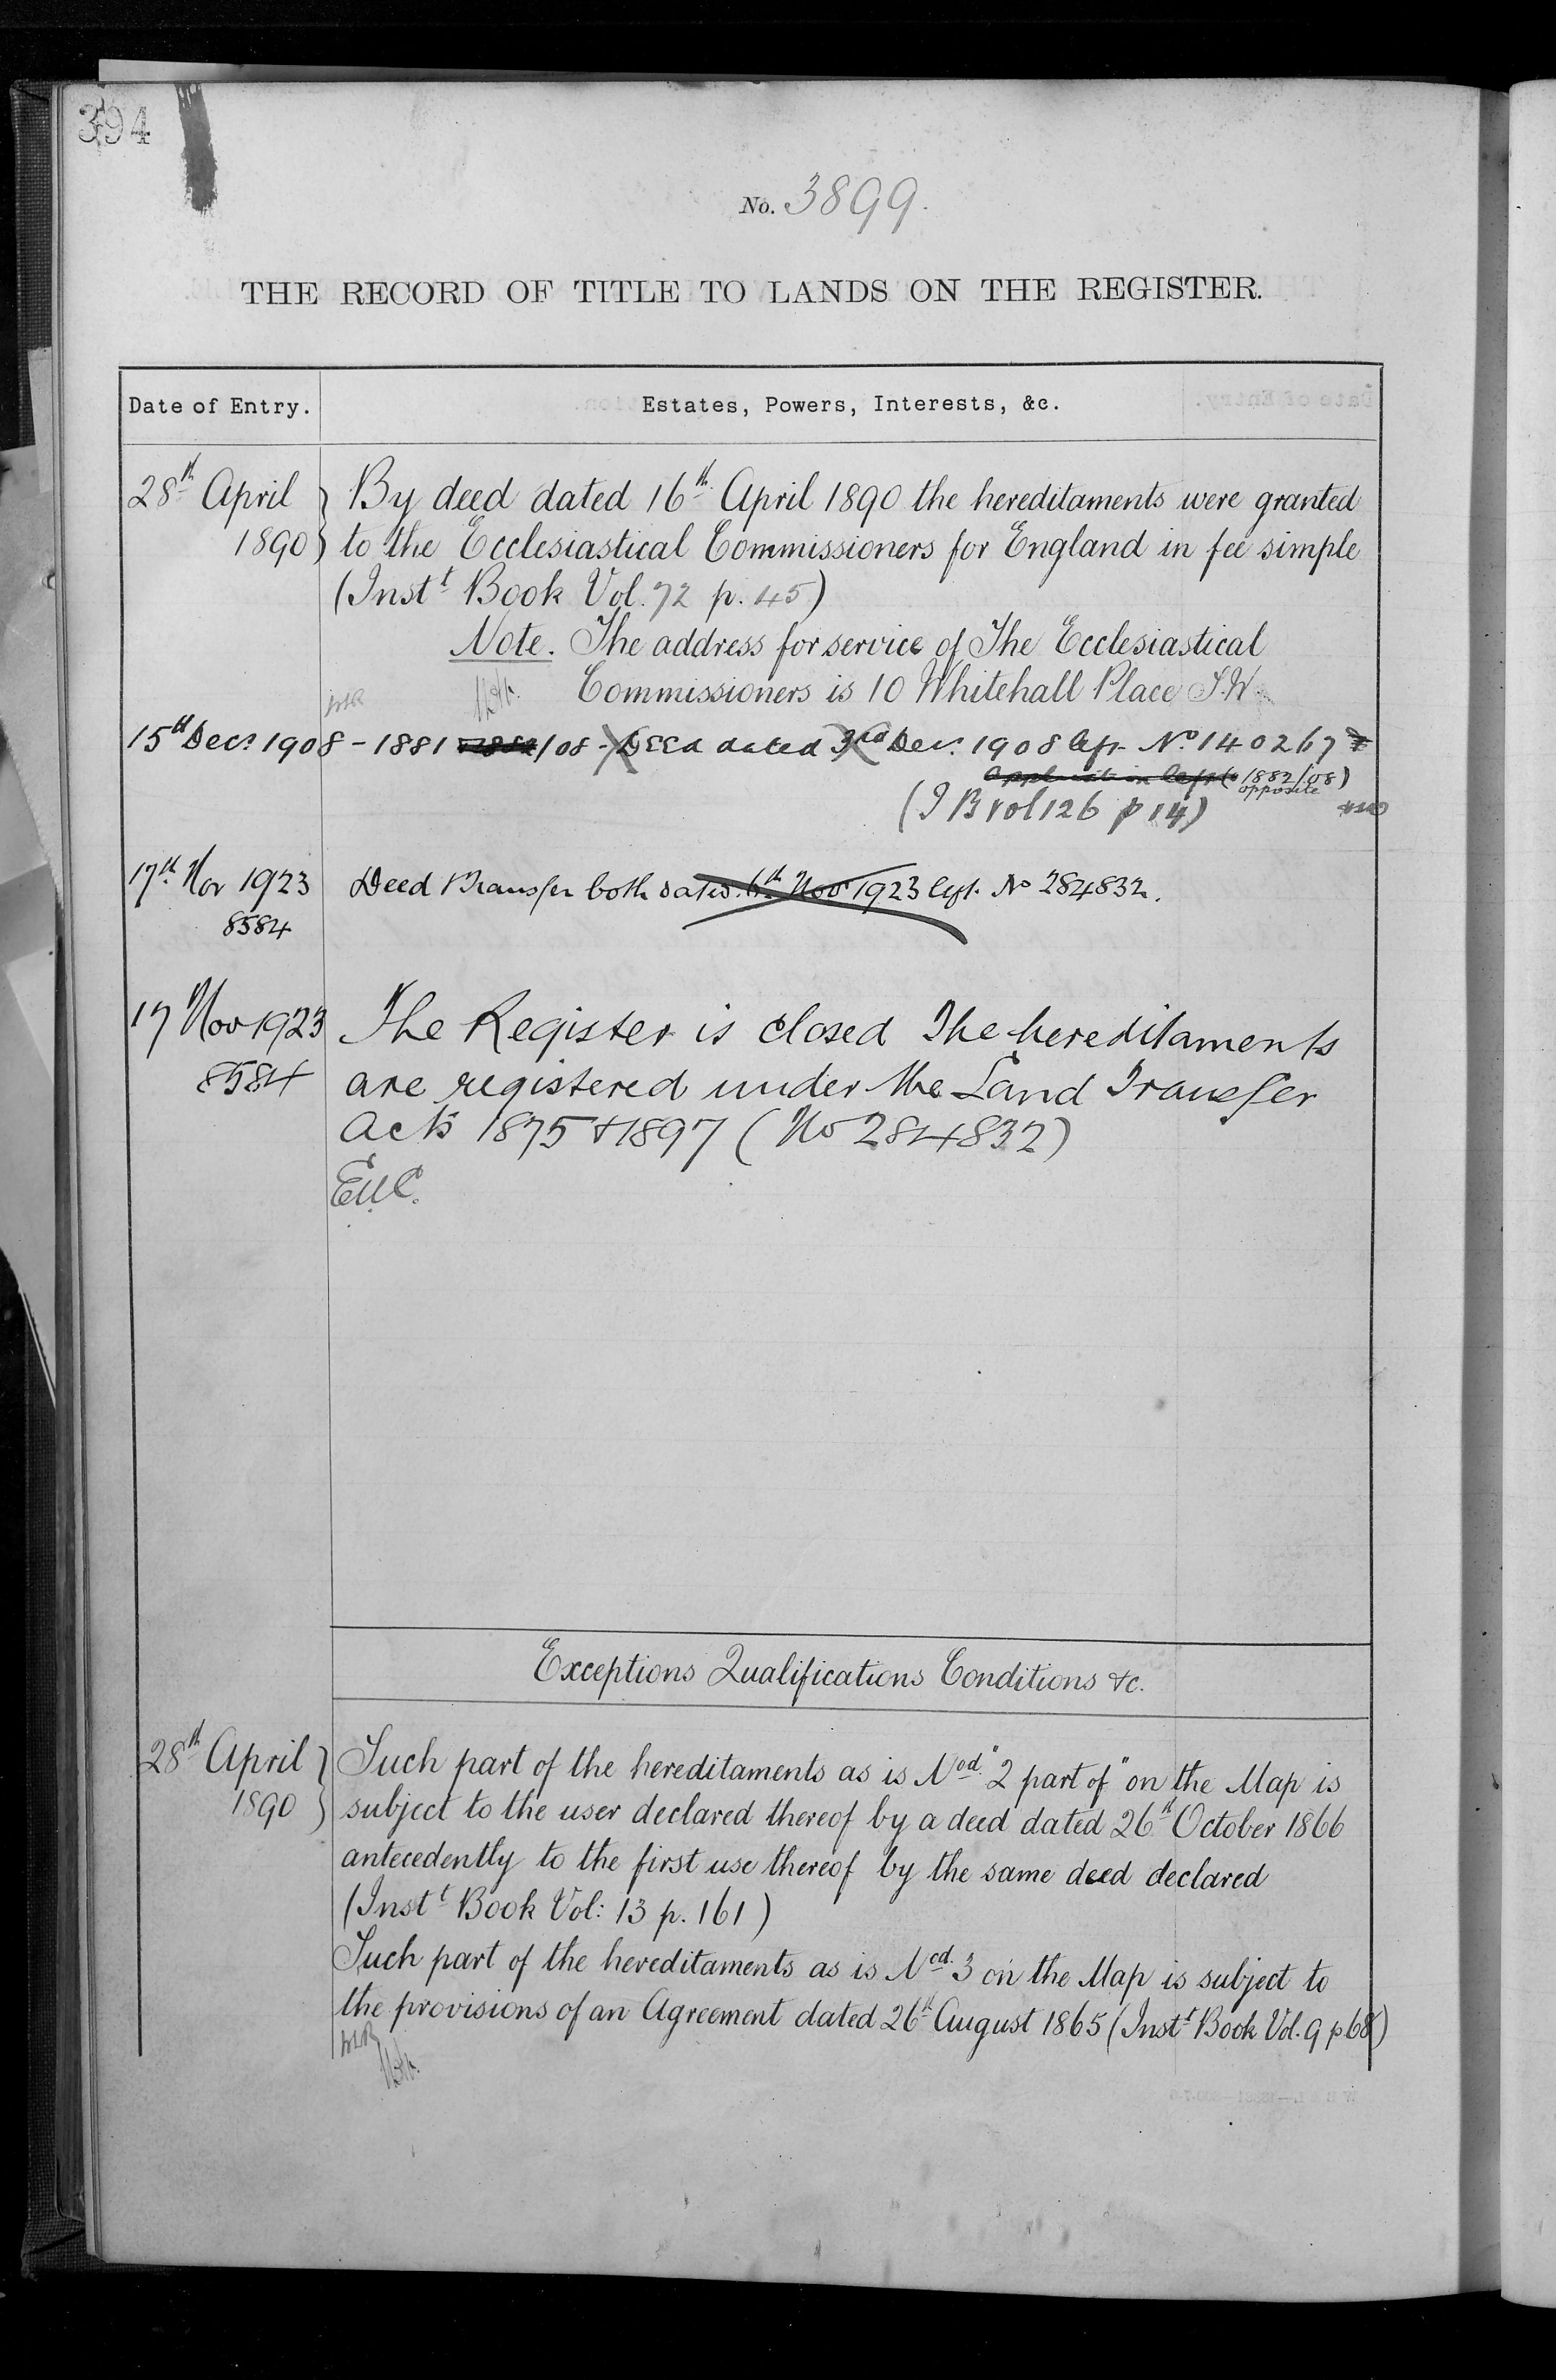 394
No. 3899.
THE RECORD OF TITLE TO LANDS ON THE REGISTER.
Date of Entry.
Estates, Powers, Interests, &c.
28th April 1890
By deed dated 16th April 1890 the hereditaments were granted
to the Ecclesiastical Commissioners for England in fee simple
(Instt Book Vol. 72 p. 45)
Note. The address for service of The Ecclesiastical
Commissioners is 10 Whitehall Place S.W.
15th Decr 1908 - 1881 /08 - Deed dated 3rd Decr 1908 No 140267
1882/08)
opposite
(I B vol 126 p 14)
17th Nov 1923
8584
Deed & Transfer both dated 6th Nov 1923 No 284832.
17 Nov 1923
8584
The Register is closed The hereditaments
are registered under the Land Transfer
Acts 1875 & 1897 (No 284832)
Exceptions Qualifications Conditions &c.
28th April 1890
Such part of the hereditaments as is Nod. "2 part of" on the Map is
subject to the user declared thereof by a deed dated 26th October 1866
antecedently to the first use thereof by the same deed declared
(Instt Book Vol: 13 p. 161)
Such part of the hereditaments as is Nod. 3 on the Map is subject to
the provisions of an Agreement dated 26th August 1865 (Instt Book Vol. 9 p 68)